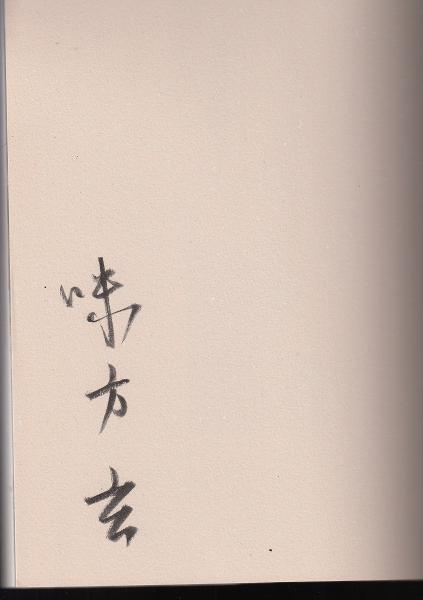 味方玄